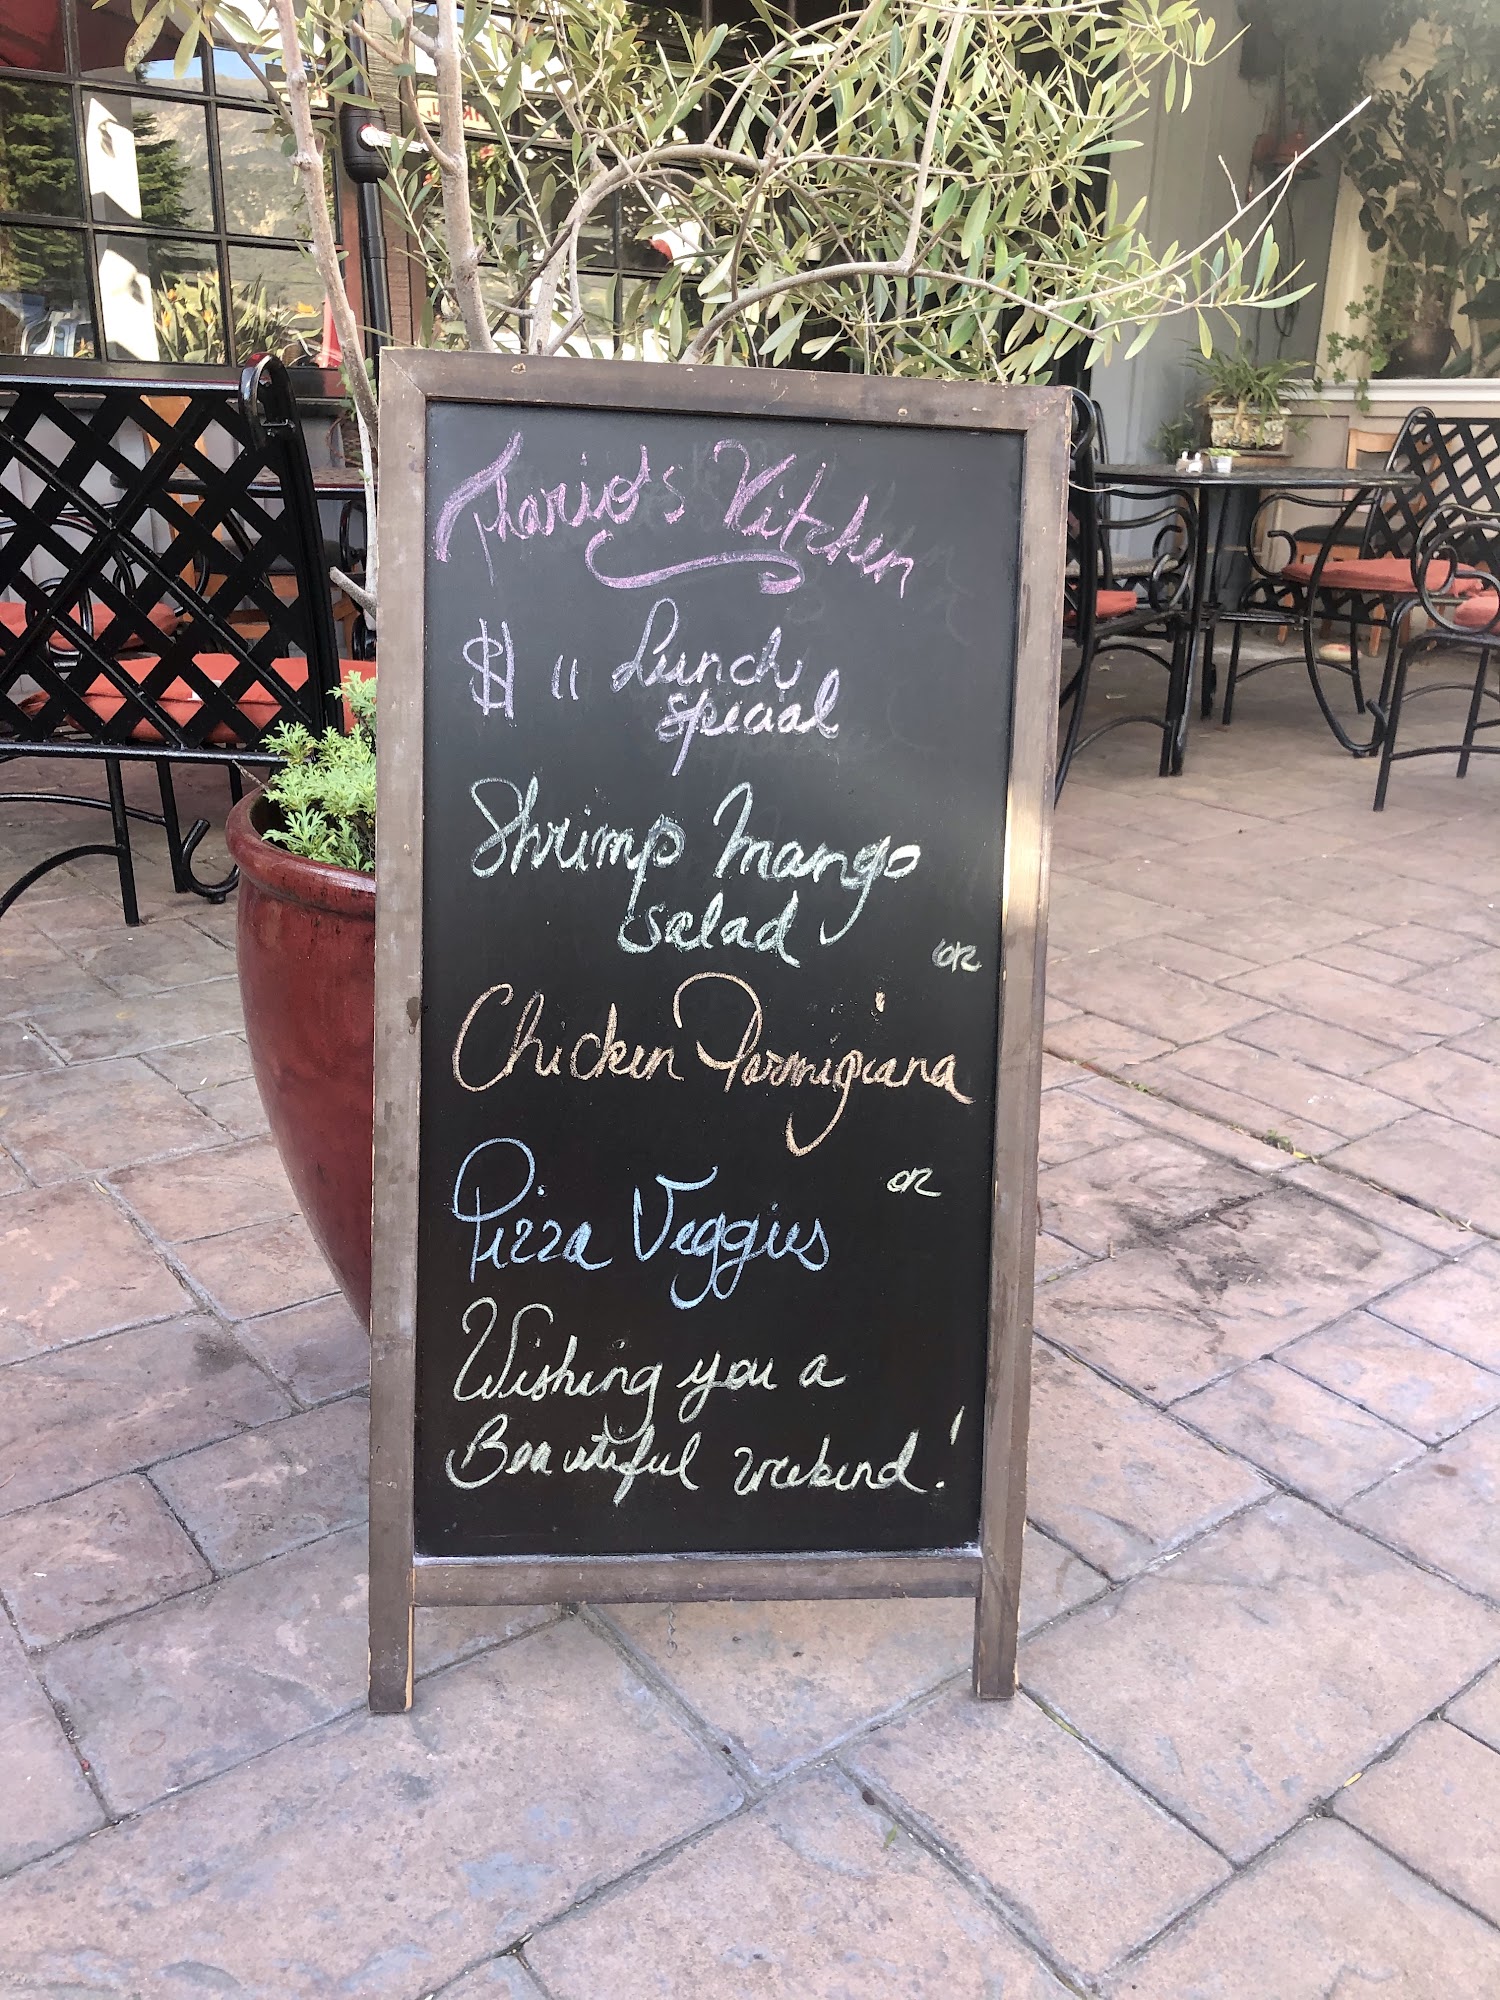 Thario's Kitchen
$11 Lunch
special
Shrimp Mango
salad
or
Chicken Parmigiana
or
Pizza Veggies
Wishing you a
Beautiful weekend!